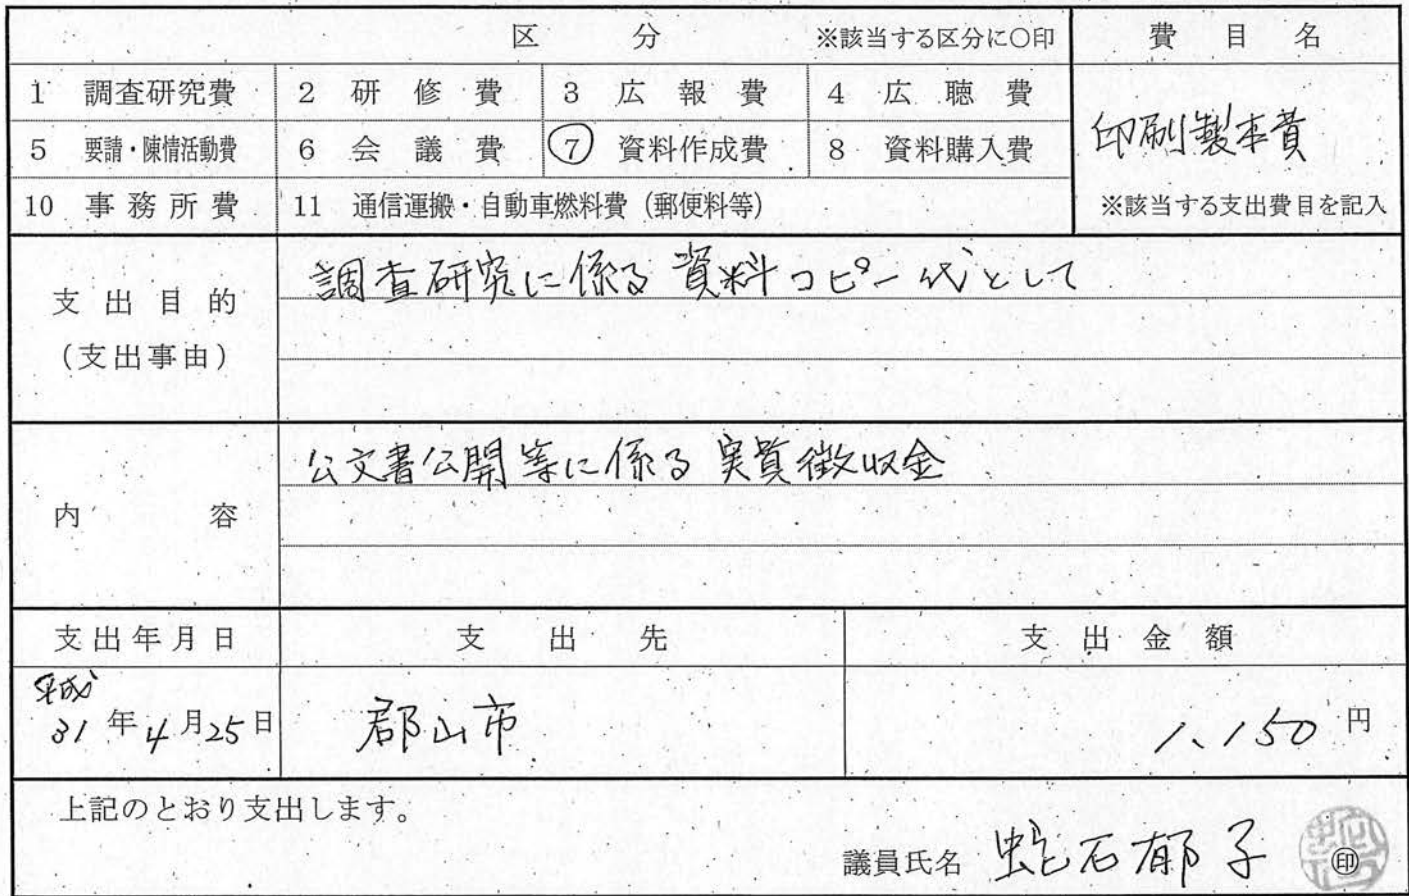 区 分 ※該当する区分に○印 費 目 名
1 調査研究費 2 研 修 費 3 広 報 費 4 広 聴 費
5 要請・陳情活動費 6 会 議 費 ⑦ 資料作成費 8 資料購入費
印刷製本費
10 事務所費 11 通信運搬・自動車燃料費(郵便料等)
※該当する支出費目を記入
支 出 目 的
(支出事由)
調査研究に係る資料コピー代として
内 容
公文書公開等に係る実質徴収金
支出年月日 支 出 先 支 出 金 額
平成
31年4月25日 郡山市 1,150円
上記のとおり支出します。
議員氏名 蛇石郁子 ㊞